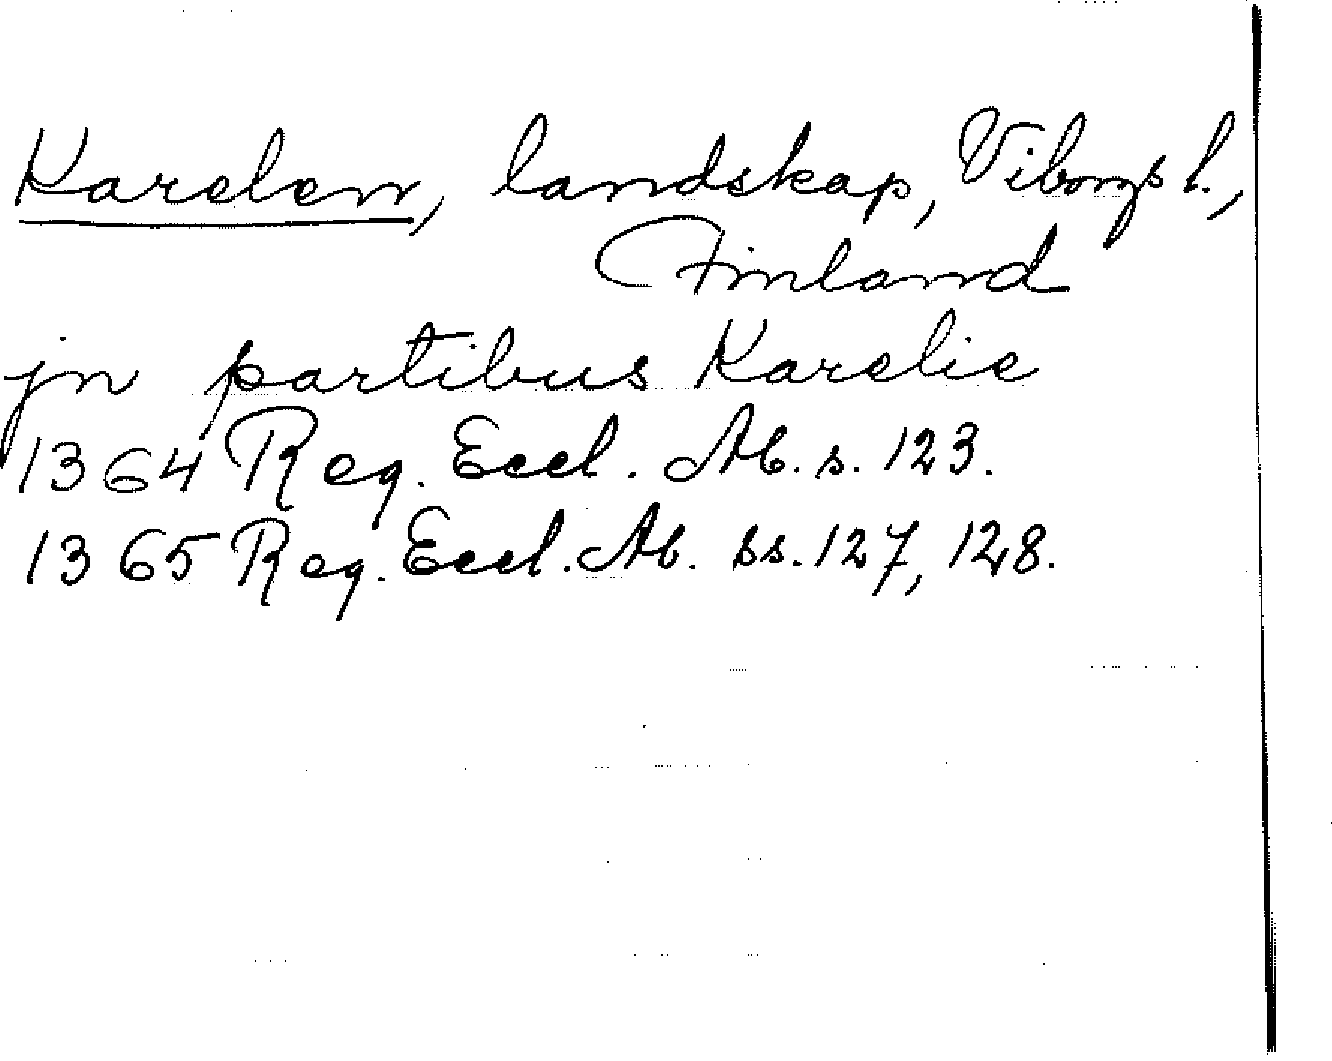 Karelen, landskap, Viborgs l.,
Finland
jn partibus Karelie
1364 Reg. Eccl. Ab. s. 123.
1365 Reg. Eccl. Ab. ss. 127, 128.